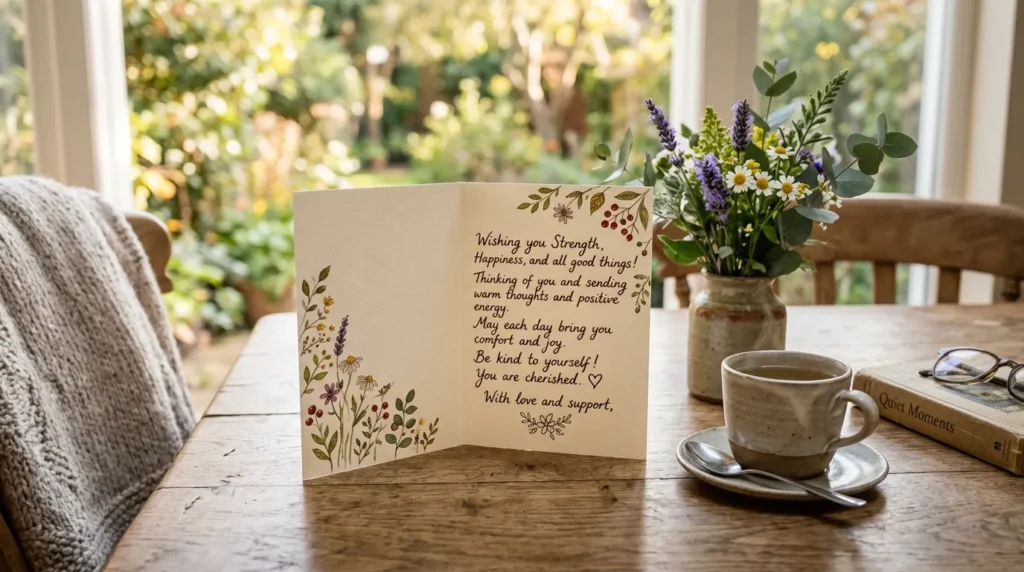 Wishing you Strength,
Happiness, and all good things!
Thinking of you and sending
warm thoughts and positive
energy.
May each day bring you
comfort and joy.
Be kind to yourself!
You are cherished. ♡
With love and support,
Quiet Moments